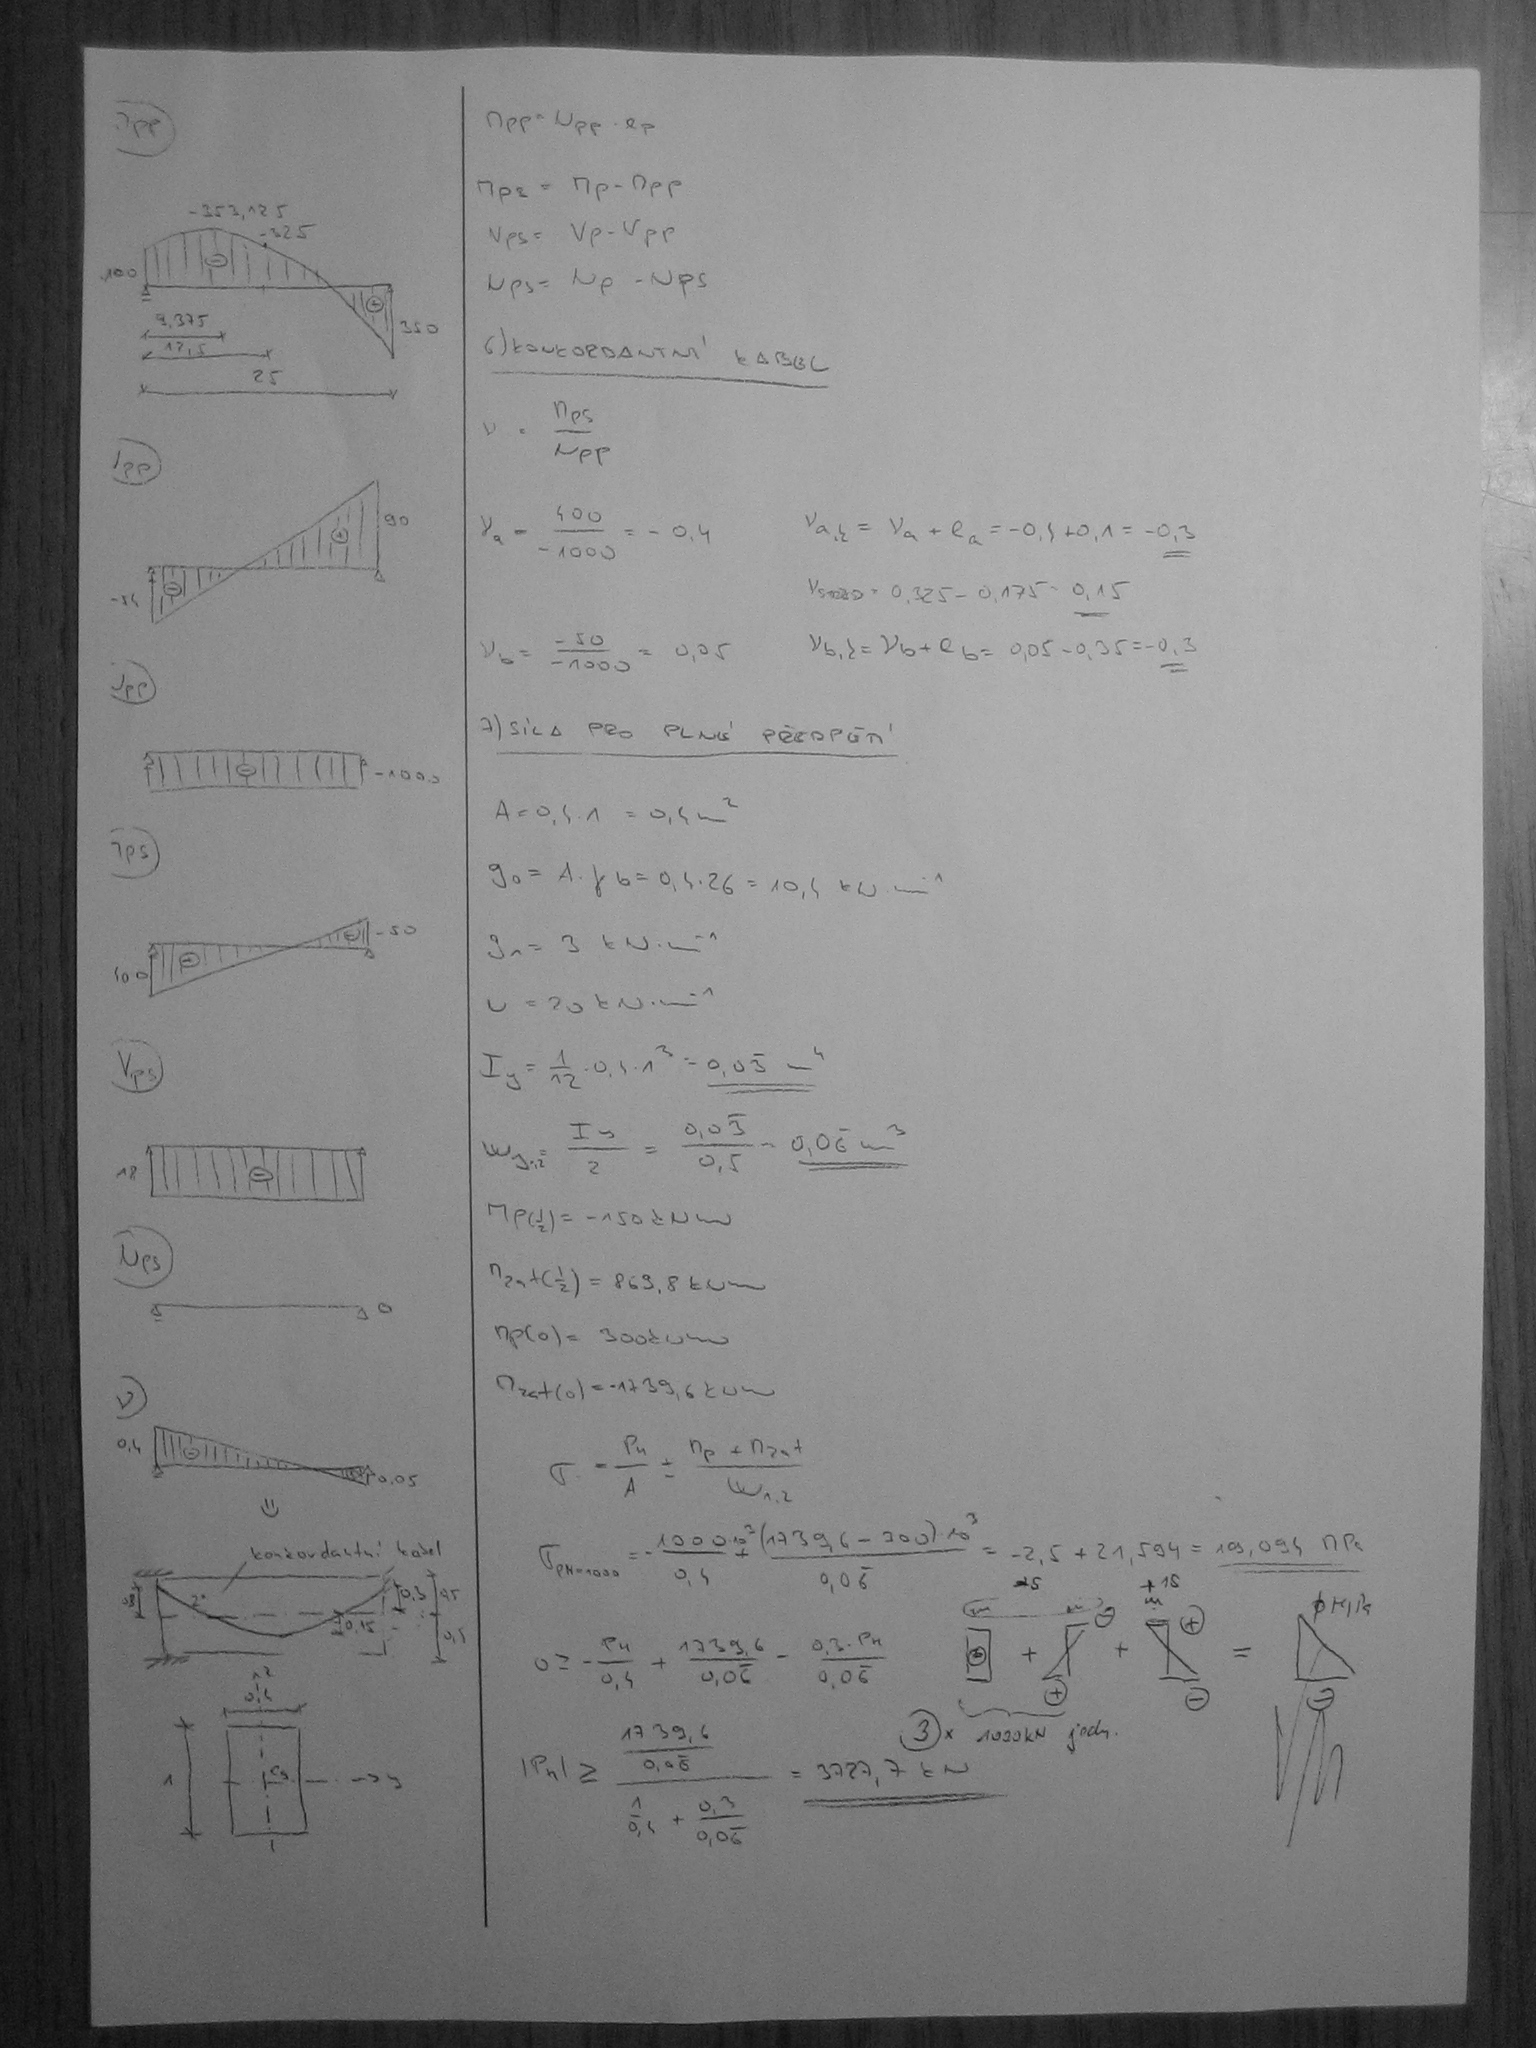 Mpp
-353,125
-325
100
⊖
⊕
350
9,375
12,5
25
Vpp
90
⊕
⊖
-54
Npp
⊖
-1000
Mps
-50
400
Vps
18
⊖
Nps
0
ν
0,4
0,05
konkordantní kabel
2°
0,3
0,5
0,15
0,5
0,4
1
Cg
y
Mpp = Npp · ep
Mps = Mp - Mpp
Vps = Vp - Vpp
Nps = Np - Nps
6) KONKORDANTNÍ KABEL
ν = Mps / Npp
νa = 400 / -1000 = -0,4
νa,k = νa + ea = -0,4 + 0,1 = -0,3
νstřed = 0,325 - 0,175 = 0,15
νb = -50 / -1000 = 0,05
νb,k = νb + eb = 0,05 - 0,35 = -0,3
7) SÍLA PRO PLNÉ PŘEDPĚTÍ
A = 0,4 · 1 = 0,4 m²
g0 = A · γb = 0,4 · 26 = 10,4 kN·m⁻¹
g1 = 3 kN·m⁻¹
υ = 20 kN·m⁻¹
Iy = 1/12 · 0,4 · 1³ = 0,03̄ m⁴
Wy1,2 = Iy / 2 = 0,03̄ / 0,5 = 0,06̄ m³
Mp(½) = -150 kNm
Mzat(½) = 869,8 kNm
Mp(0) = 300 kNm
Mzat(0) = -1739,6 kNm
σ = Pn / A ± Mp + Mzat / W1,2
σPn=1000 = -1000·10³ / 0,4 + (1739,6 - 300)·10³ / 0,06̄ = -2,5 + 21,594 = 19,094 MPa
+15
0 ≥ -Pn / 0,4 + 1739,6 / 0,06̄ - 0,3·Pn / 0,06̄
⊖ + ⊖ ⊕ + ⊕ ⊖ = ⊖
3 × 1000kN jedn.
|Pn| ≥ (1739,6 / 0,06̄) / (1 / 0,4 + 0,3 / 0,06̄) = 3727,7 kN